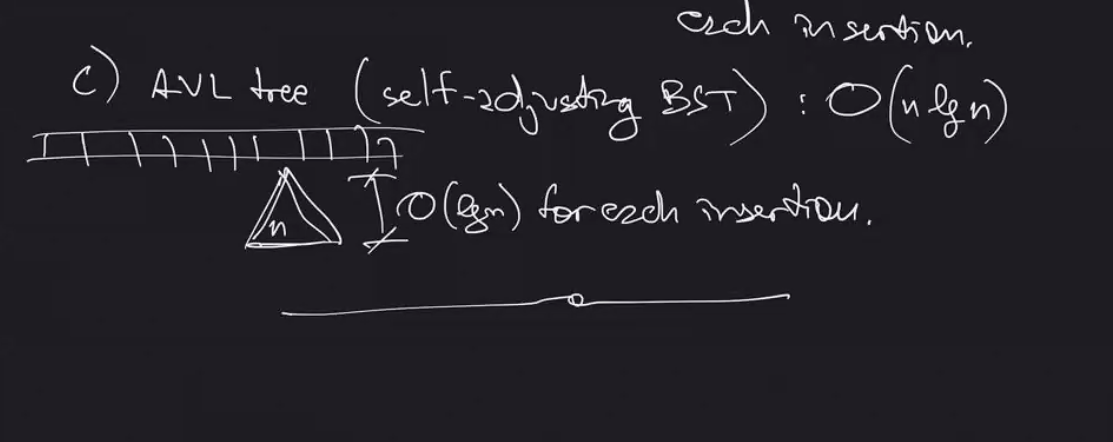 each insertion.
c) AVL tree (self-adjusting BST) : O(n lg n)
n
O(lg n) for each insertion.